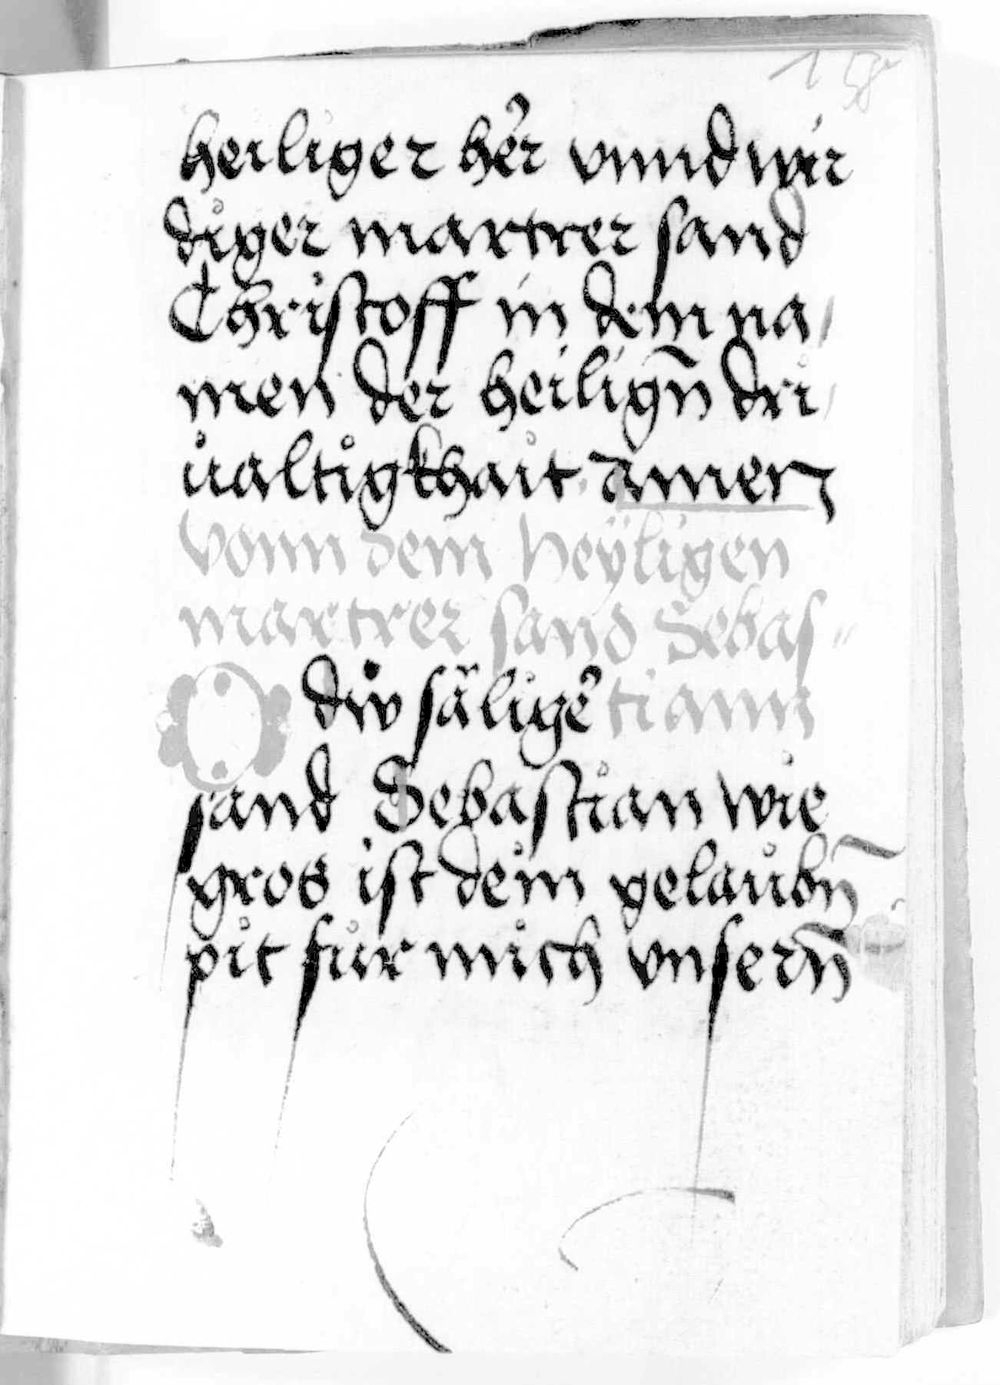 158
heiliger her vnnd wir
diger martrer sand
Christoff in dem na
men der heilign̄ dri
ualtigkhait amen
Vonn dem heÿligen
martrer sand Sebas-
O dw säliger tiann
sand Sebastian wie
gros ist dein gelaubn̄
pit für mich vnsern̄